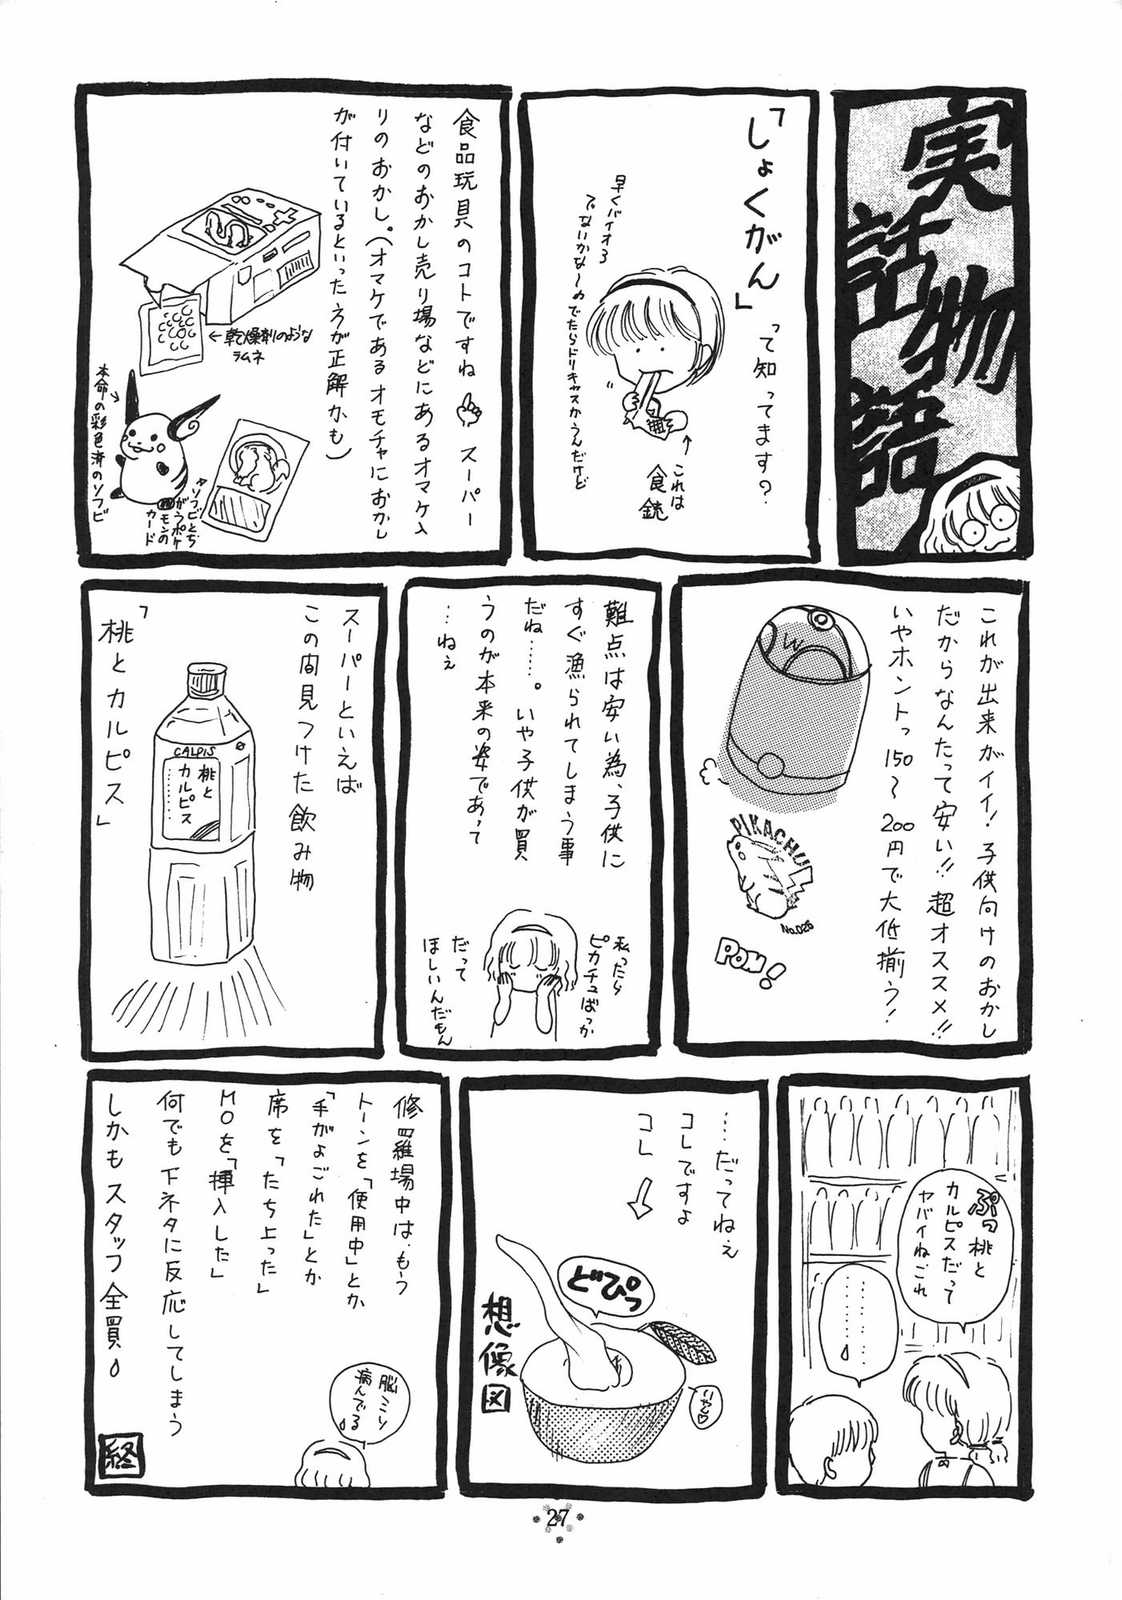 実話物語
「しょくがん」
って知ってます？
早くバイオ3
でないかな〜
でたらドリキャスかうんだけど
これは
食銃
食品玩具のコトですね
スーパー
などのおかし売り場などにあるオマケ入
りのおかし。(オマケであるオモチャにおかし
が付いているといった方が正解かも)
←乾燥剤のような
ラムネ
本命の彩色済のソフビ
ソフビとち
がうポケ
モンの
カード
これが出来がイイ！子供向けのおかし
だからなんたって安い!!超オススメ!!
いやホントっ150〜200円で大低揃う！
W
PIKACHU
No.025
POM!
難点は安い為、子供に
すぐ漁られてしまう事
だね……。いや子供が買
うのが本来の姿であって
…ねぇ
私ったら
ピカチュばっか
だって
ほしいんだもん
スーパーといえば
この間見つけた飲み物
「桃とカルピス」
CALPIS
桃と
カルピス
ぷっ桃と
カルピスだって
ヤバイねこれ
…………
……だってねぇ
コレですよ
コレ
どぴっ
いやん♡
想像図
修羅場中は、もう
トーンを「使用中」とか、
「手がよごれた」とか
席を「たち上った」
MOを「挿入した」
何でも下ネタに反応してしまう
しかもスタッフ全員
脳ミソ
病んでる
終
27